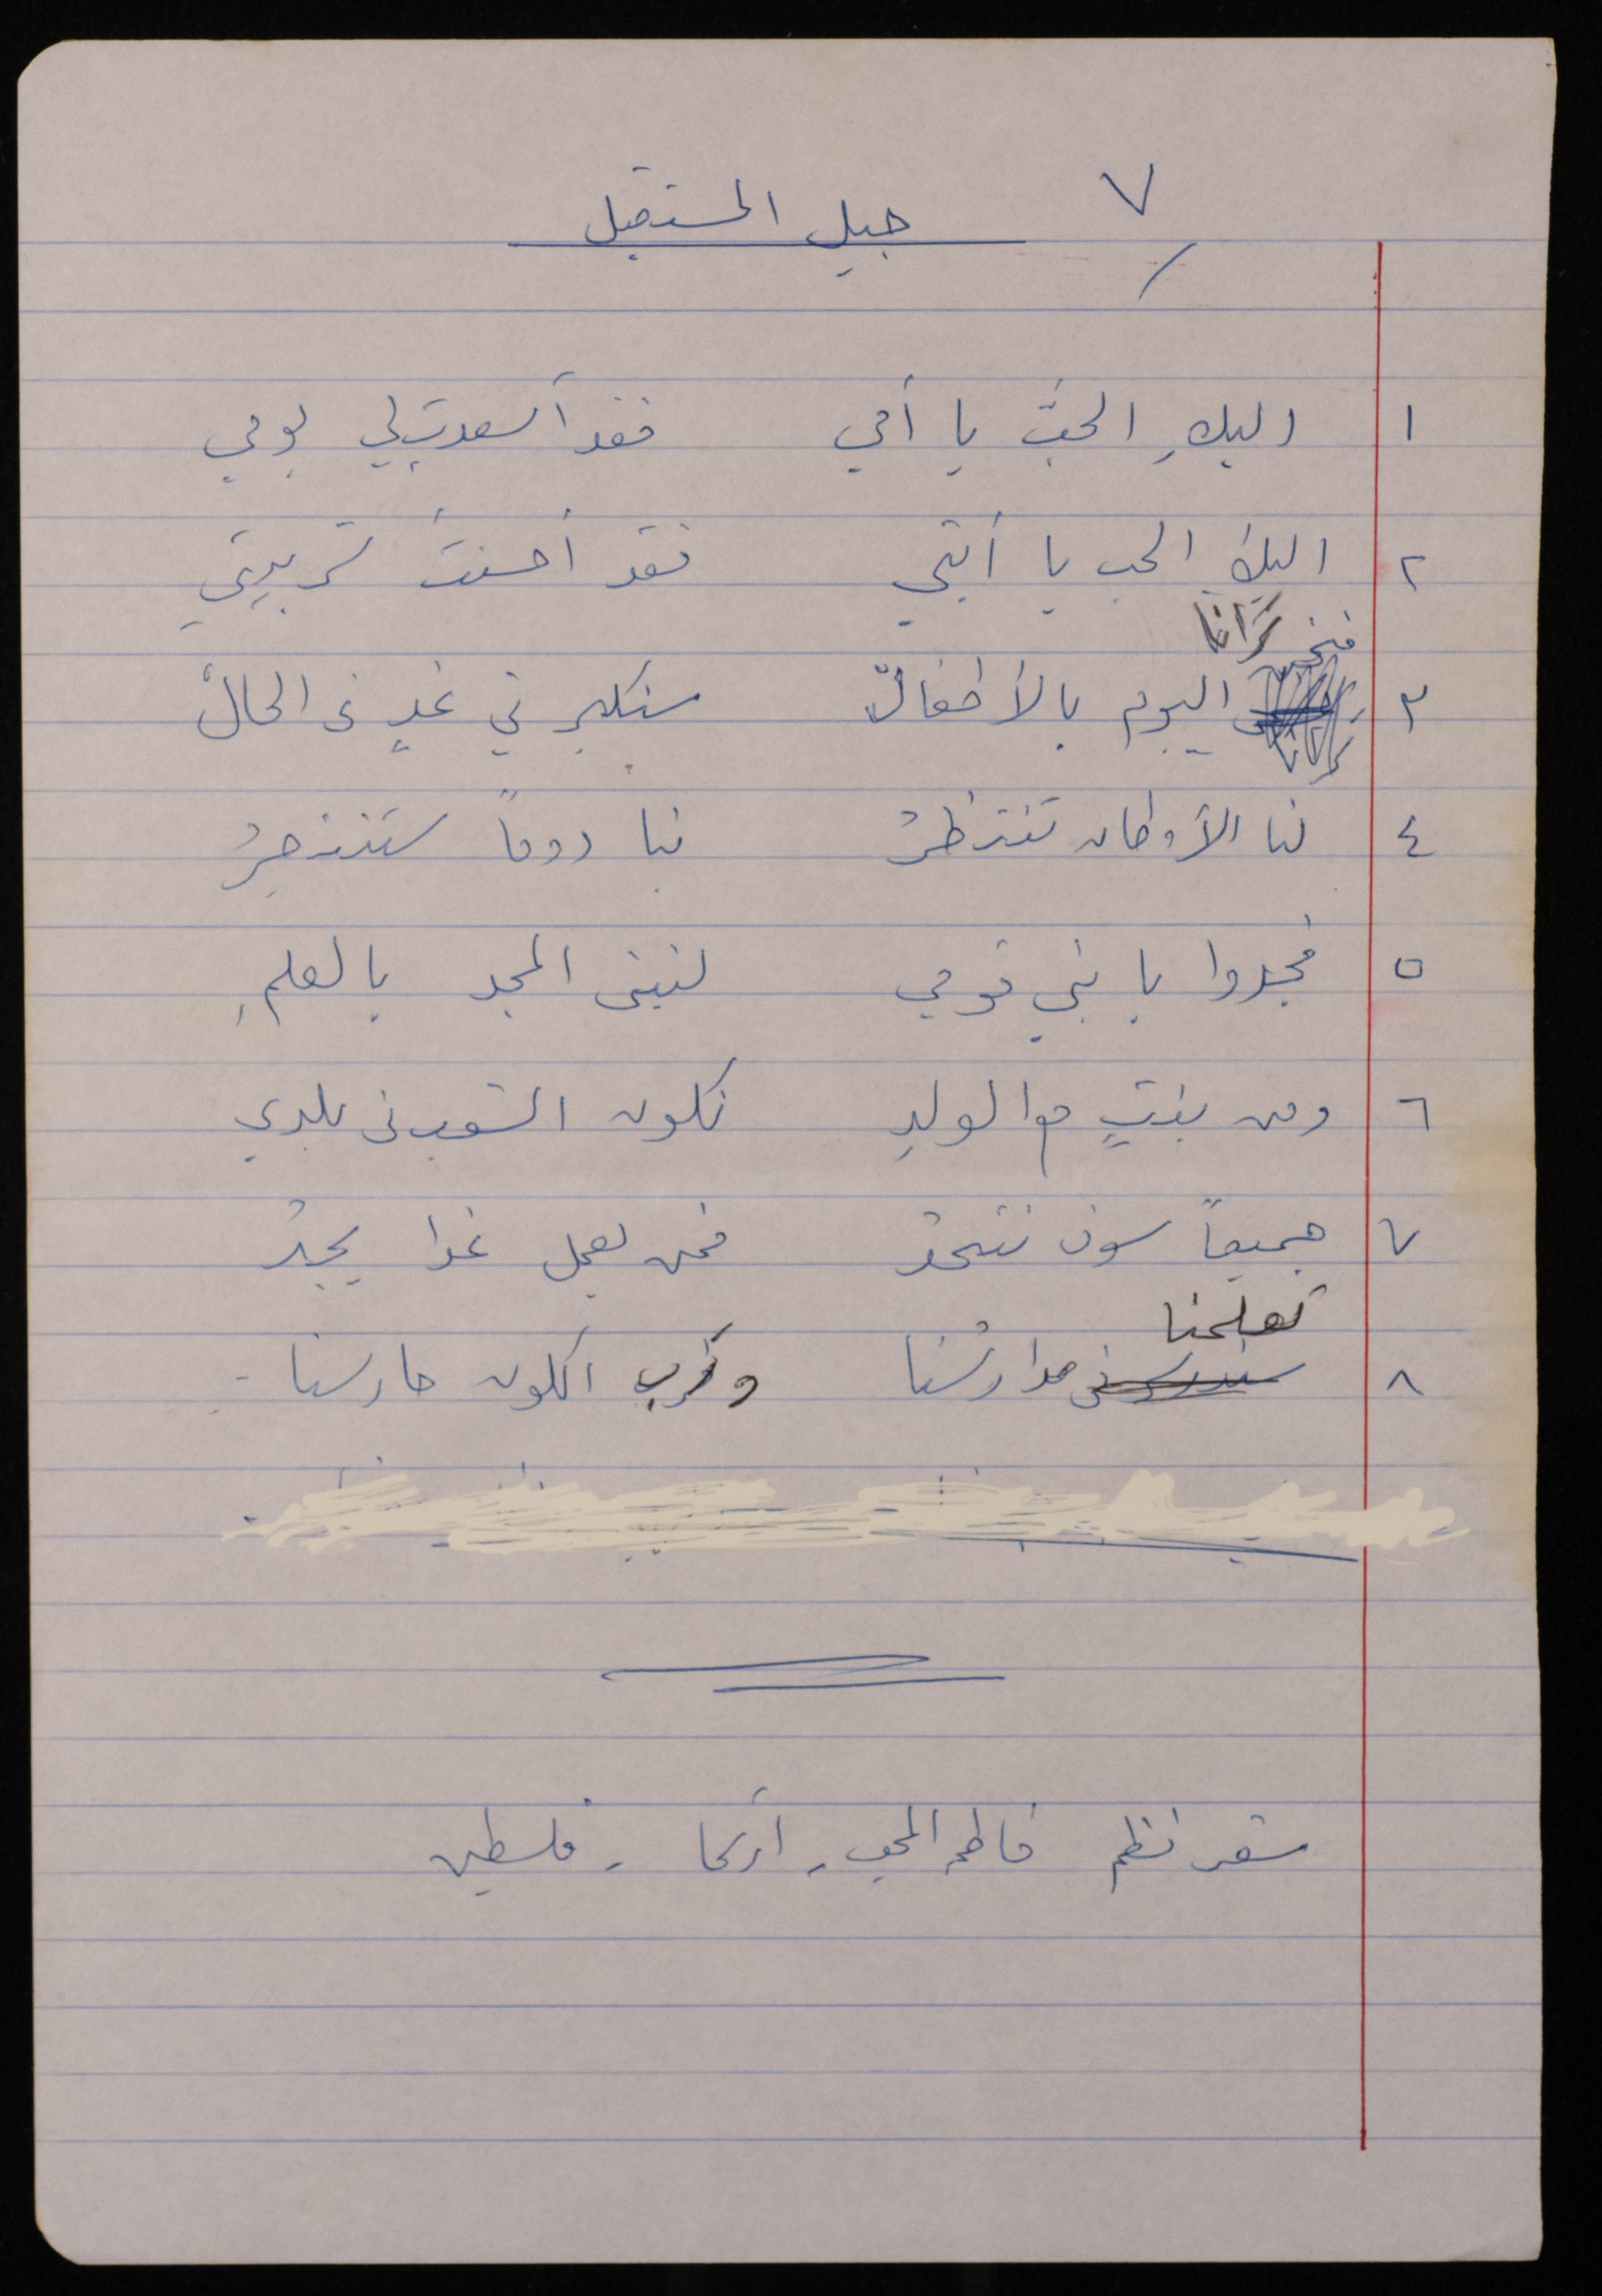 ٧ جيل المستقبل
١ اليكِ الحبَّ يا أمي فقد أسعدتِ لي يومي
٢ اليكَ الحب يا أبتي فقد أحسنتَ تربيتي
ترانا
٣ اليوم بالأطفالْ سنكبر في غدٍ في الحالْ
٤ لنا الأوطان تنتظرُ بنا دوماً ستفتخرُ
٥ فجدوا يا بني قومي لنبني المجد بالعلمِ
٦ ومن بنتٍ مع الولدِ نكون الشعب في بلدي
٧ جميعاً سوف نتحدُ فمن يعمل غدا يجدُ
تعلمنا
٨ مدارسُنا وربُ الكون حارسنا
شعر نظم فاطمة المحب - أريحا - فلسطين